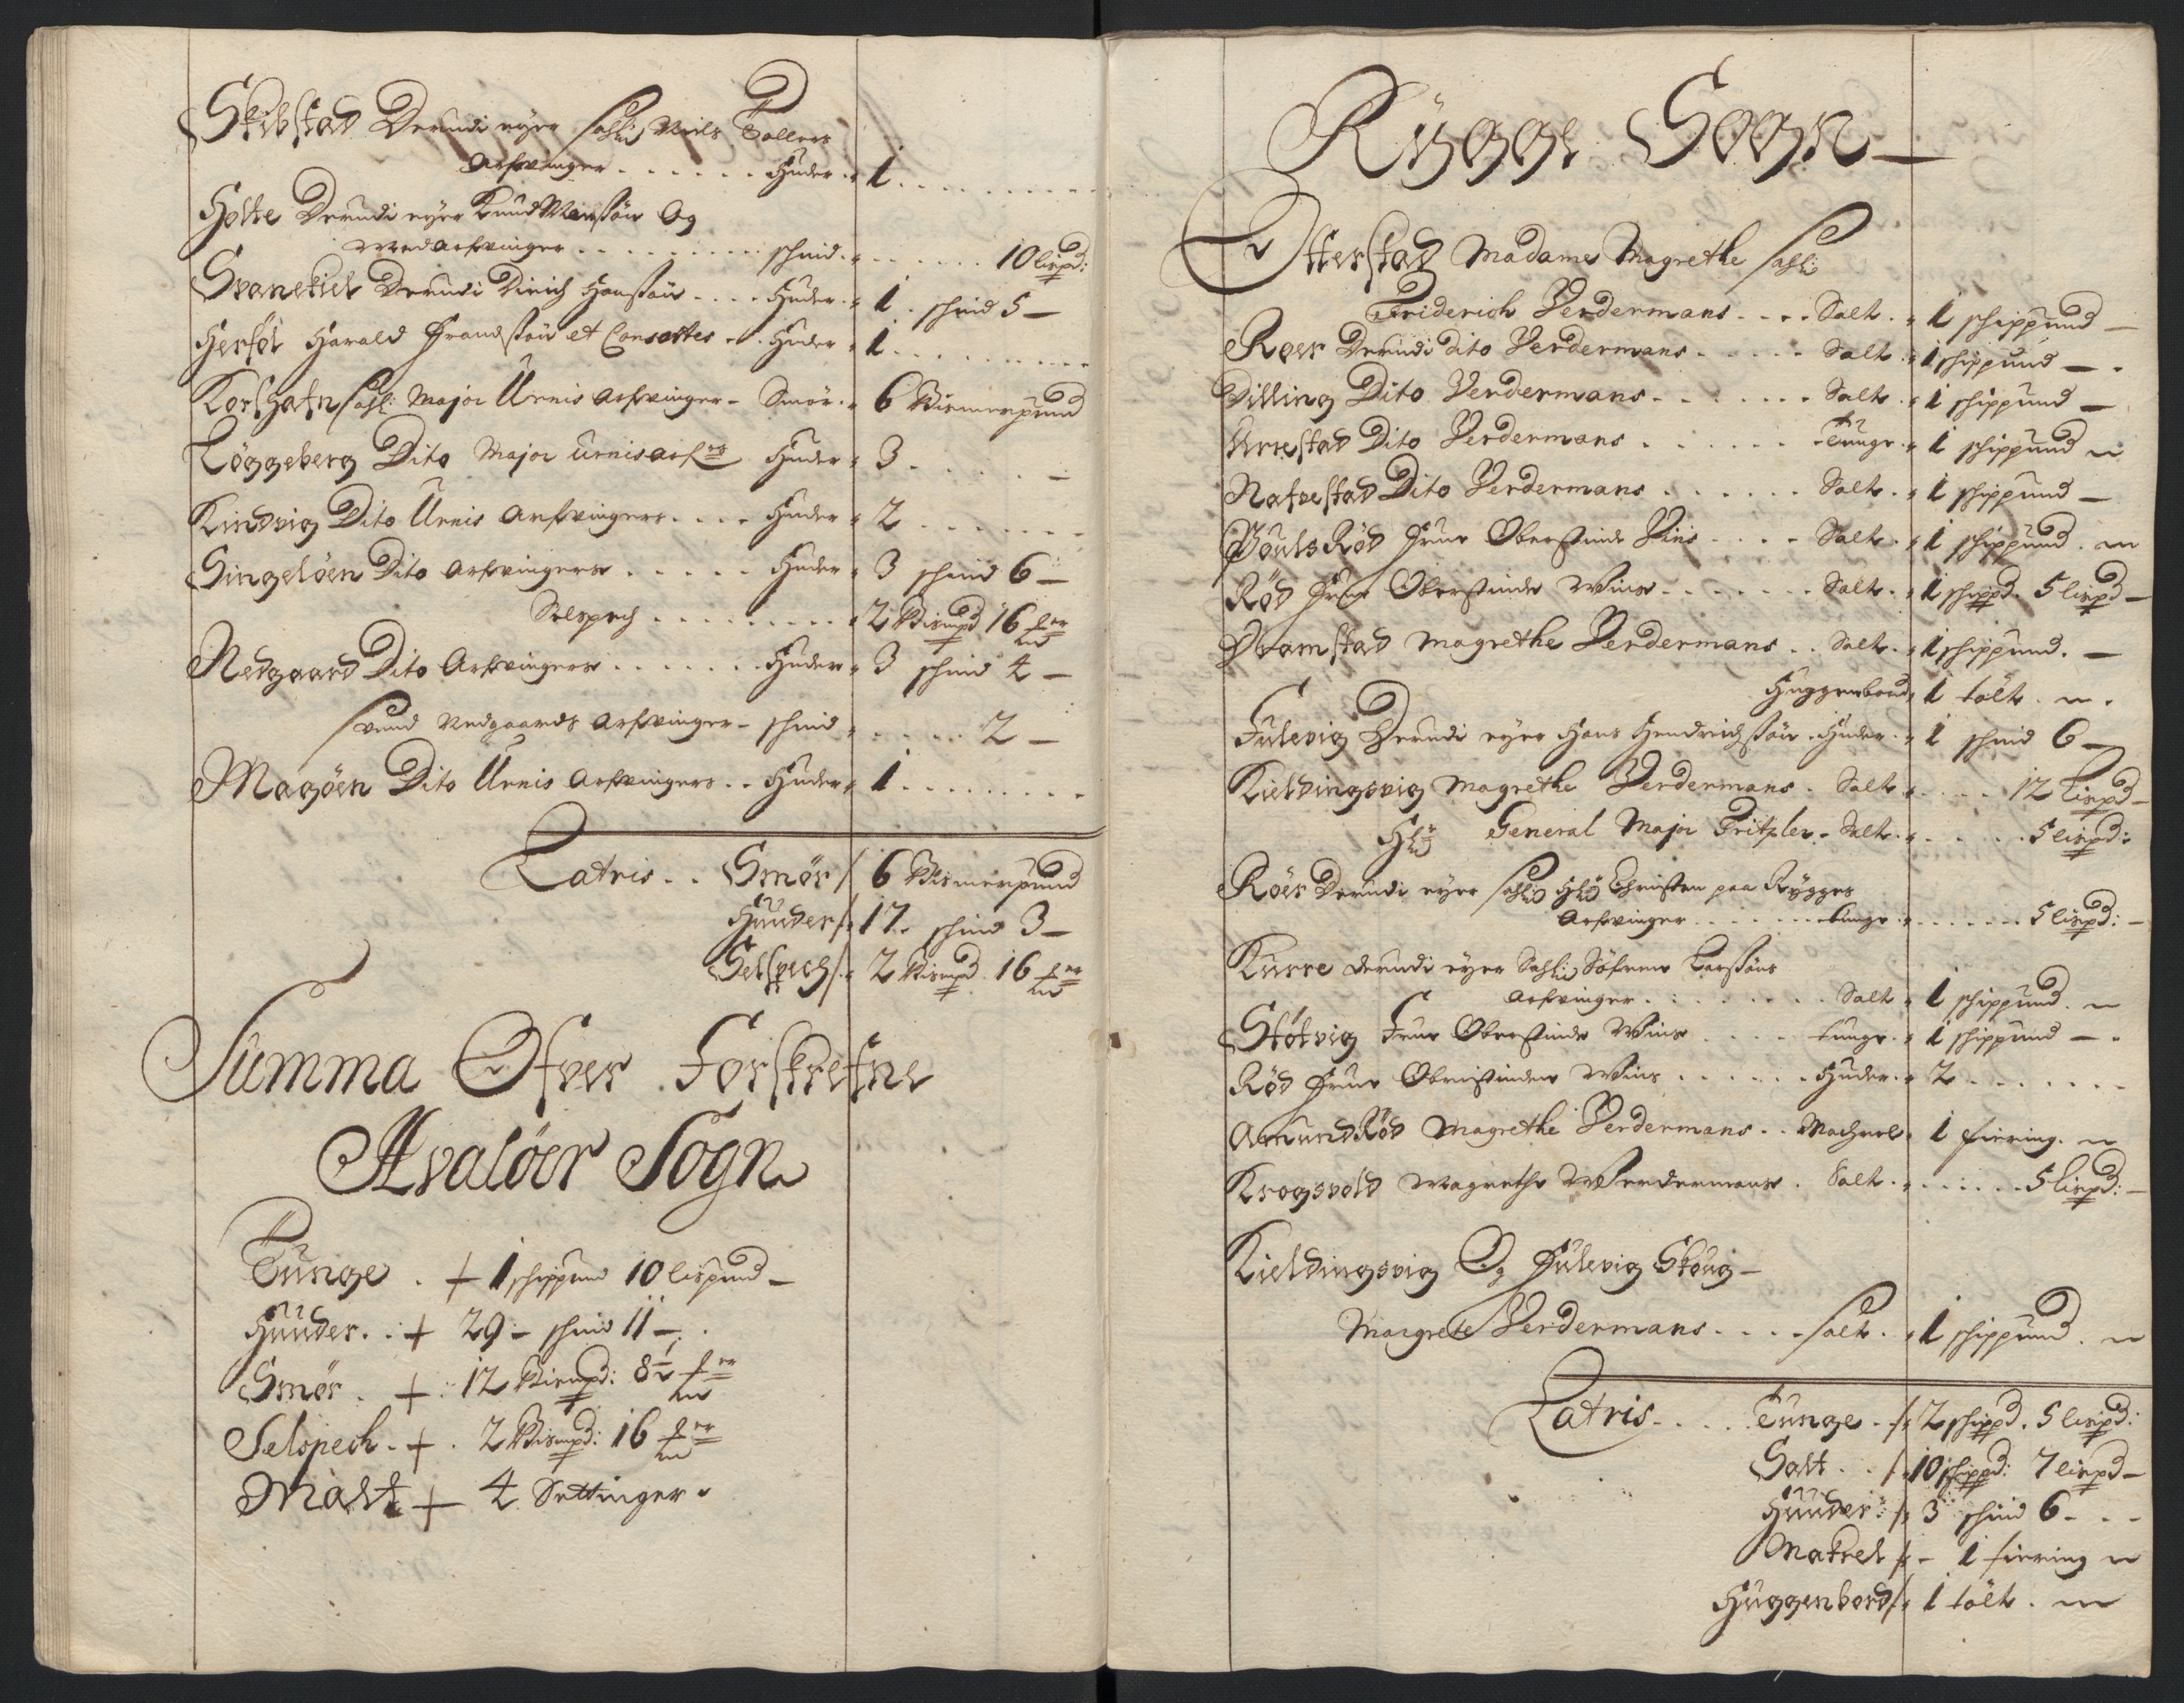 Skibstad Derudi eyer Sahli Niels Tollers
Arfvinger . . . . . . Huder . 1 . . . . . . . . .
Holte Derudi eyer Knud Monßøn Og
Medarfvinger . . . . . . . . schind . . . . . . 10 lispd:
Svanekiel Derudi Dirich Hanßøn . . . . Huder . 1 . schind 5 —
Herføl Harald Frandßøn et Consortes . . Huder 1 . . . . . . . .
Korshafn Sahl: Major Urnis Arfvinger - Smör . 6 Bismerpund
Løggeberg Dito Major Urnis arf:er Huder 3 . . . . . —
Kindvig Dito Urnis Arfvingers . . . . Huder 2 . . . . . .
Singelöen Dito Arfvingers . . . . . Huder 3 schind 6 —
Selspech . . . . . . . . . 2 Bismpd 16
Nedgaard Dito Arfvingers . . . . . . . Huder 3 schind 4 —
Nedgaards Arfvinger - schind . . . . . 2 —
Magöen Dito Urnis Arfvingers . . Huder 1 . . . . . . . . .
Latris . . Smør / 6 Bismerpund
Huuder / 17 . schind 3 —
Selspech / 2 Bismpd 16
Summa Ofver Forskrefne
Hvalöer Sogn
Tunge . + 1 schippund 10 lispund —
Huuder . : + 29 - schind 11 -
Smør . + : 12 Bismpd: 8½
Selspech . + . 2 Bismpd: 16
Malt + 4 Settinger .
Rÿgge Sogn —
Otterstad Madame Magrethe Sahli
Friderich Verdermans . . . . Salt . 1 schippund —
Roer Derudi dito Verdermans . . . . . Salt 1 schippund — .
Dilling Dito Verdermans . . . . . . . Salt . 1 schippund —
Arrestad Dito Verdermans . . . . . . Tunge . 1 schippund
Nafvestad Dito Verdermans . . . . . . Salt . 1 schippund —
PoulsRød Frue Oberstinde Vins . . . . Salt . 1 schippund .
Rød Frue Oberstinde Wins . . . . . . . Salt . 1 schippd . 5 lispd —
Dramstad Magrethe Verdermans . . Salt . 1 schippund . —
Huggenbord 1 tölt .
Fulevig Derudi eyer Hans Hendrichßøn . Huder . 1 schind 6 —
Kieldingsvig Magrethe Verdermans . Salt . . . . . 12 Lispd —
General Major Tritzler . Salt . . . . . 5 lispd:
Röer Derudi eyer Sahli Christen paa Rygges
Arfvinger . . . . . . . tunge . . . . . . . 5 lispd: —
Kurre derudi eyer Sahli Söfrens Larßöns
Arfvinger . . . . . . . . Salt . 1 schippund .
Støtvig Frue Oberstinde Wins . . . . tunge . 1 schippund — .
Rød Frue Obristinden Wins . . . . . . Huder . 2 . . . . . . .
AamundRød Magrethe Verdermans . . Machrel . 1 fiering .
Krogsvold Magrethe Werdermans . Salt . . . . . . . 5 lispd: —
Kieldingsvig Og Fulevig Skoug —
Margrete Verdermans . . . . salt . 1 schippund .
Latris . . . . Tunge . / 2 schippd . 5 lispd:
Salt . . / 10 schippd: 7 lispd —
Huuder: / 3 schind 6 - . -
Makrel / - 1 fiering
Huggenbord / 1 tölt .